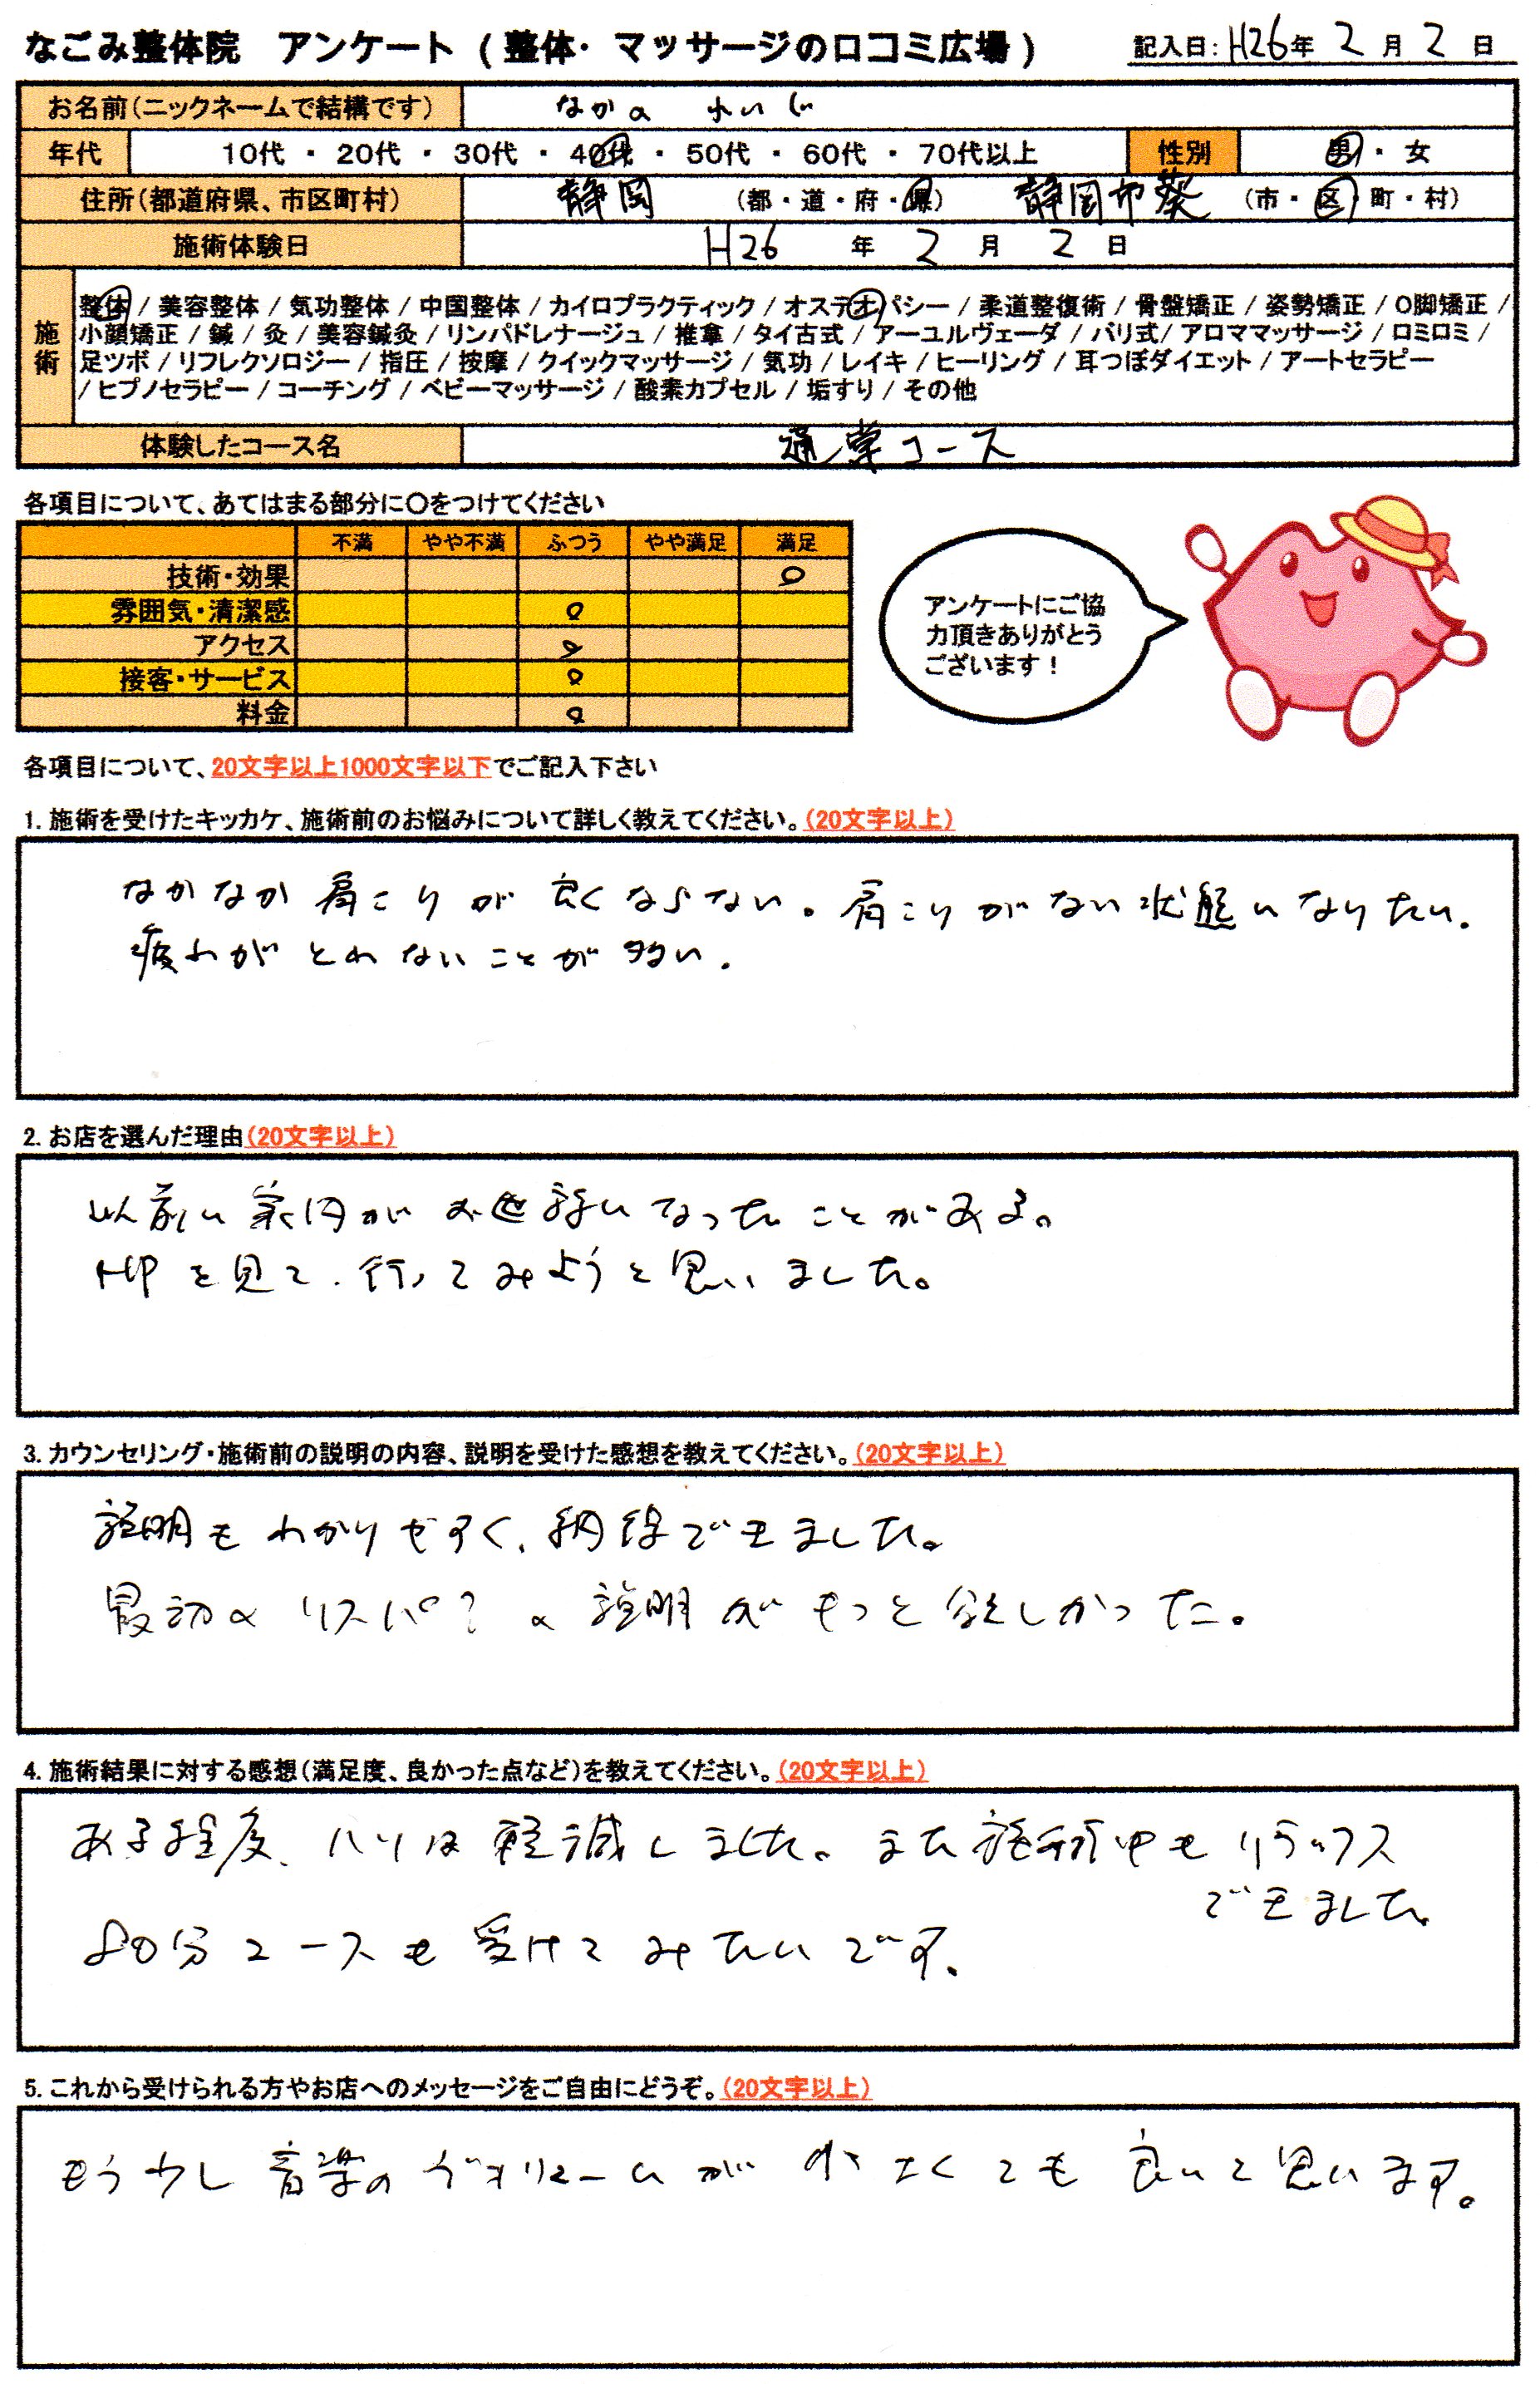 なごみ整体院 アンケート ( 整体・マッサージの口コミ広場 )
記入日: H26年 2月 2日
お名前(ニックネームで結構です) なかの れいじ
年代 10代 ・ 20代 ・ 30代 ・ 40代 ・ 50代 ・ 60代 ・ 70代以上 性別 男・女
住所(都道府県、市区町村) 静岡 (都・道・府・県) 静岡市葵 (市・区・町・村)
施術体験日 H26 年 2 月 2 日
施術
整体 / 美容整体 / 気功整体 / 中国整体 / カイロプラクティック / オステオパシー / 柔道整復術 / 骨盤矯正 / 姿勢矯正 / O脚矯正 /
小顔矯正 / 鍼 / 灸 / 美容鍼灸 / リンパドレナージュ / 推拿 / タイ古式 / アーユルヴェーダ / バリ式/ アロママッサージ / ロミロミ /
足ツボ / リフレクソロジー / 指圧 / 按摩 / クイックマッサージ / 気功 / レイキ / ヒーリング / 耳つぼダイエット / アートセラピー
/ ヒプノセラピー / コーチング / ベビーマッサージ / 酸素カプセル / 垢すり / その他
体験したコース名 通常コース
各項目について、あてはまる部分に○をつけてください
不満 やや不満 ふつう やや満足 満足
技術・効果
雰囲気・清潔感
アクセス
接客・サービス
料金
アンケートにご協
力頂きありがとう
ございます!
各項目について、20文字以上1000文字以下でご記入下さい
1. 施術を受けたキッカケ、施術前のお悩みについて詳しく教えてください。(20文字以上)
なかなか肩こりが良くならない。肩こりがない状態になりたい。
疲れがとれないことが多い。
2. お店を選んだ理由(20文字以上)
以前に家内がお世話になったことがある。
HPを見て、行ってみようと思いました。
3. カウンセリング・施術前の説明の内容、説明を受けた感想を教えてください。(20文字以上)
説明もわかりやすく、納得できました。
最初のリスパ?の説明がもっと欲しかった。
4. 施術結果に対する感想(満足度、良かった点など)を教えてください。(20文字以上)
ある程度、ハリは軽減しました。また施術中もリラックス
できました。
80分コースも受けてみたいです。
5. これから受けられる方やお店へのメッセージをご自由にどうぞ。(20文字以上)
もう少し音楽のヴォリュームが小さくても良いと思います。